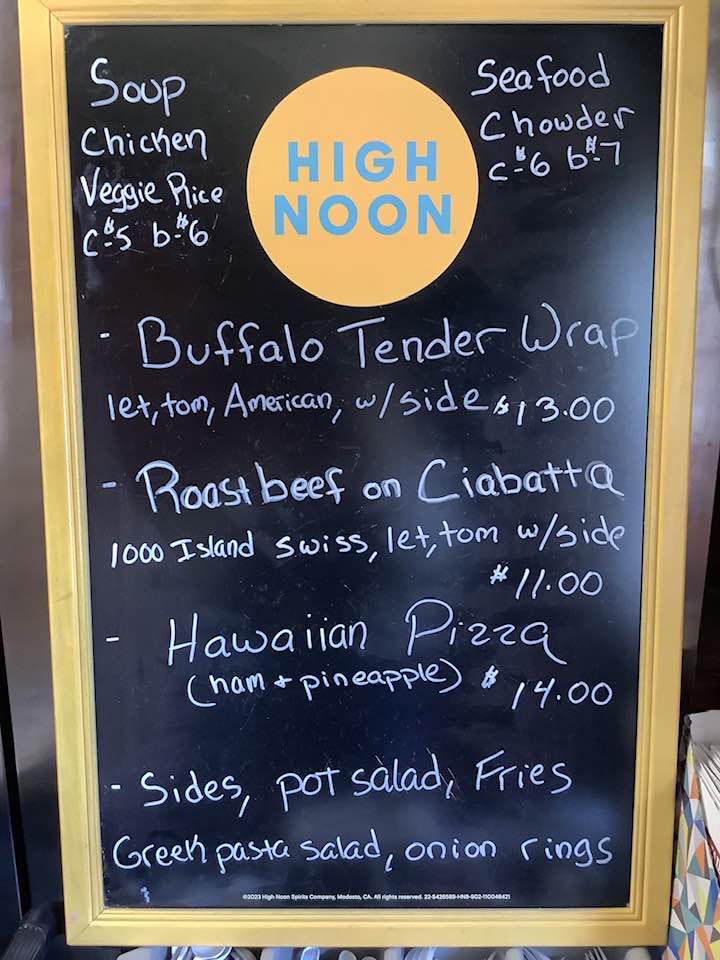 Soup
Chicken
Veggie Rice
c-$5 b-$6
HIGH
NOON
Seafood
Chowder
c-$6 b-$7
- Buffalo Tender Wrap
let, tom, American, w/side $13.00
- Roast beef on Ciabatta
1000 Island swiss, let, tom w/side
$11.00
- Hawaiian Pizza
(ham + pineapple) $14.00
- Sides, pot salad, Fries
Greek pasta salad, onion rings
©2023 High Noon Spirits Company, Modesto, CA. All rights reserved. 22-5426589-HNB-902-110048421